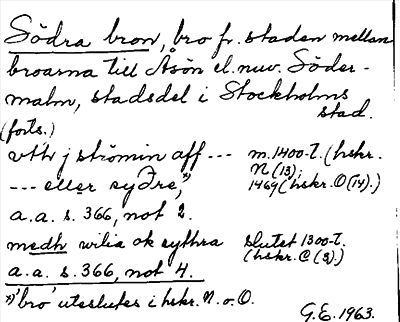 Södra bron, bro fr. staden mellan
broarna till Åsön el. nuv. Söder-
malm, stadsdel i Stockholms
stad.
(forts.)
vthr j strömin aff --- m. 1400-t. (hskr.
N (13);
--- eller syðre,*) 1469 (hskr. O (14).)
a.a. s. 366, not 2.
medh wilia ok sythra slutet 1300-t.
(hskr. C (9).)
a.a. s. 366, not 4.
*) 'bro' uteslutes i hskr. N. o. O.
G.E. 1963.